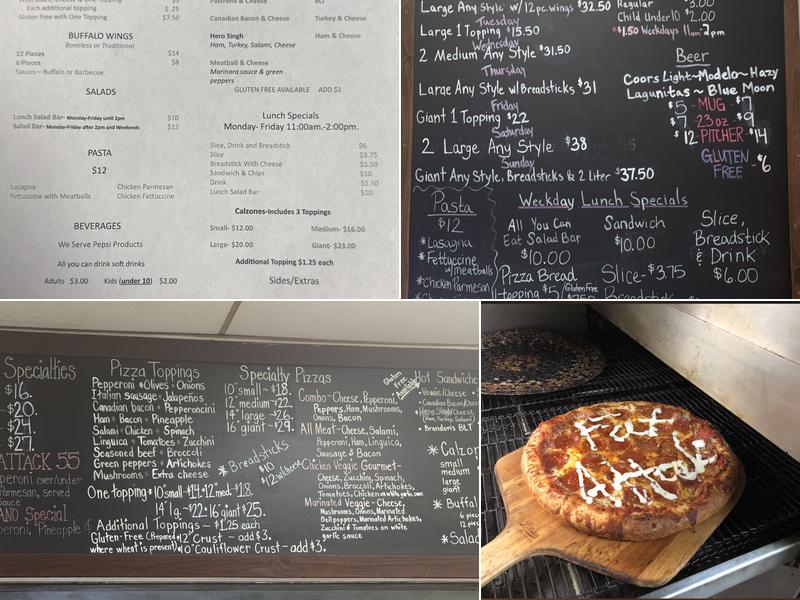 Each additional topping $ .25
Gluten Free with One Topping $7.50
BUFFALO WINGS
Boneless or Traditional
12 Pieces $14
6 Pieces $8
Sauces – Buffalo or Barbecue
SALADS
Lunch Salad Bar- Monday-Friday until 2pm $10
Salad Bar- Monday-Friday after 2pm and Weekends $12
PASTA
$12
Lasagna Chicken Parmesan
Fettuccine with Meatballs Chicken Fettuccine
BEVERAGES
We Serve Pepsi Products
All you can drink soft drinks
Adults $3.00 Kids (under 10) $2.00
Pastrami & Cheese BLT
Canadian Bacon & Cheese Turkey & Cheese
Hero Singh Ham & Cheese
Ham, Turkey, Salami, Cheese
Meatball & Cheese
Marinara sauce & green
peppers
GLUTEN FREE AVAILABLE ADD $1
Lunch Specials
Monday- Friday 11:00am.-2:00pm.
Slice, Drink and Breadstick $6
Slice $3.75
Breadstick With Cheese $1.50
Sandwich & Chips $10
Drink $1.50
Lunch Salad Bar $10
Calzones-Includes 3 Toppings
Small- $12.00 Medium- $16.00
Large- $20.00 Giant- $23.00
Additional Topping $1.25 each
Sides/Extras
Large Any Style w/12pc. wings $32.50
Tuesday
Large 1 Topping $15.50
Wednesday
2 Medium Any Style $31.50
Thursday
Large Any Style w/ Breadsticks $31
Friday
Giant 1 Topping $22
Saturday
2 Large Any Style $38
Sunday
Giant Any Style, Breadsticks & 2 liter $37.50
Regular $3.00
Child Under 10 $2.00
*$1.50 Weekdays 11am-2pm
Beer
Coors Light~Modelo~Hazy
Lagunitas ~ Blue Moon
$5 - MUG - $7
$7 - 23 oz - $9
$12 PITCHER $14
GLUTEN
FREE - $6
Pasta
$12
*Lasagna
*Fettuccine
w/meatballs
*Chicken Parmesan
Weekday Lunch Specials
All You Can
Eat Salad Bar
$10.00
Sandwich
$10.00
Slice,
Breadstick
& Drink
$6.00
Pizza Bread
1-topping $5/Gluten Free
Slice-$3.75
Breadstick
Specialties
$16.
$20.
$24.
$27.
ATTACK 55
peroni over/under
Parmesan, served
Sauce
ANO Special
peroni, Pineapple &
Pizza Toppings
Pepperoni • Olives • Onions
Italian Sausage • Jalapeños
Canadian bacon • Pepperoncini
Ham • Bacon • Pineapple
Salami • Chicken • Spinach
Linguica • Tomatoes • Zucchini
Seasoned beef • Broccoli
Green peppers • Artichokes
Mushrooms • Extra cheese
One topping • 10" small - $14 • 12" med. - $18.
14" lg. ~ $22. • 16" giant $25.
Additional Toppings ~ $1.25 each
Gluten-Free (Prepared *12" Crust ~ add $3.
where wheat is present) *10" Cauliflower Crust - add $3.
Specialty Pizzas
10" small ~ $18.
12" medium ~ $22.
14" large ~ $26.
16" giant ~ $29.
*Breadsticks
$10
$12 w/cheese
Combo ~ Cheese, Pepperoni,
Peppers, Ham, Mushrooms,
Onions, Bacon
All Meat ~ Cheese, Salami,
Pepperoni, Ham, Linguica,
Sausage & Bacon
Chicken Veggie Gourmet-
Cheese, Zucchini, Spinach,
Onions, Broccoli, Artichokes,
Tomatoes, Chicken on white garlic sauce
Marinated Veggie ~ Cheese,
Mushrooms, Onions, Marinated
Bell peppers, Marinated Artichokes,
Zucchini & Tomatoes on white
garlic sauce
Gluten
Free
Available
Hot Sandwiche
• Veggie/Cheese
• Canadian Bacon/Che
• Hero Singh/Cheese
(Ham, Turkey, Salami)
• Brandon's BLT
*Calzo
small
medium
large
giant
*Buffal
6 piec
12 piec
*Salad
Fat
Attack